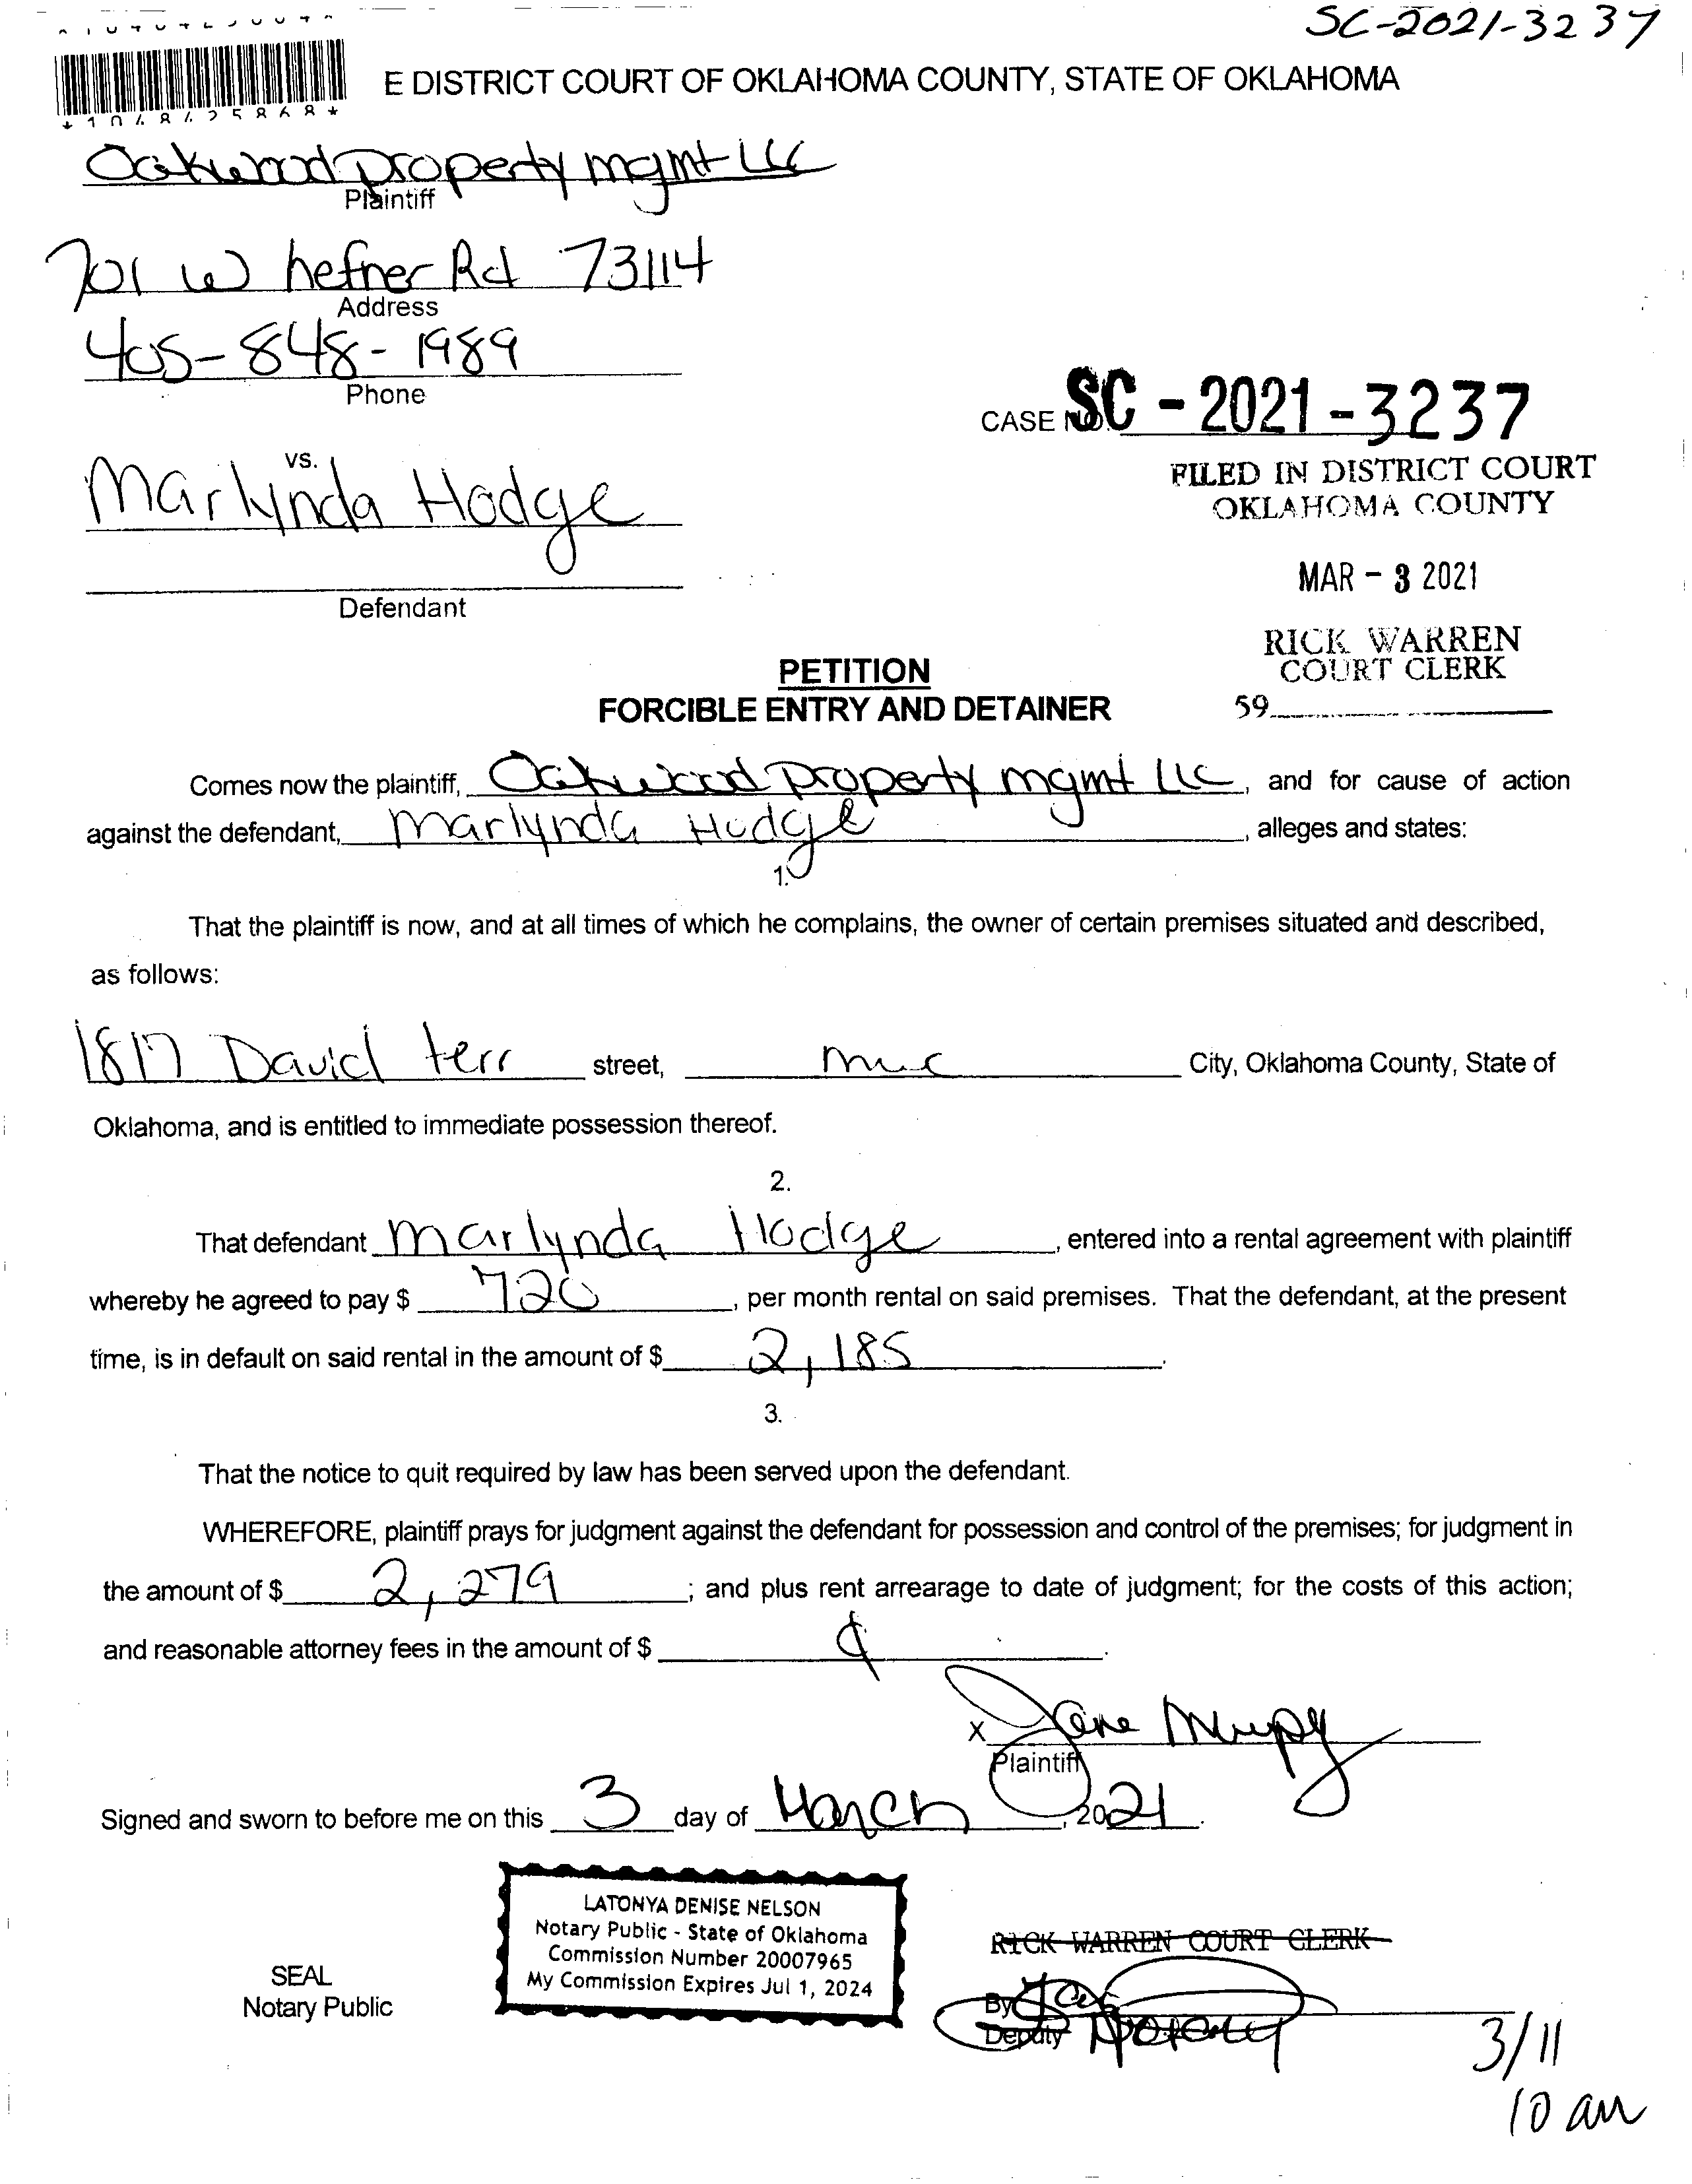 SC-2021-3237
E DISTRICT COURT OF OKLAHOMA COUNTY, STATE OF OKLAHOMA
*1048425868*
Oakwood property mgmt LLC
Plaintiff
701 W hefner Rd 73114
Address
405-848-1989
Phone
CASE NO. SC-2021-3237
vs.
FILED IN DISTRICT COURT
OKLAHOMA COUNTY
Marlynda Hodge
MAR - 3 2021
Defendant
RICK WARREN
COURT CLERK
59
PETITION
FORCIBLE ENTRY AND DETAINER
Comes now the plaintiff, Oakwood property mgmt LLC, and for cause of action
against the defendant, Marlynda Hodge, alleges and states:
1.
That the plaintiff is now, and at all times of which he complains, the owner of certain premises situated and described,
as follows:
1817 David terr street, mwc City, Oklahoma County, State of
Oklahoma, and is entitled to immediate possession thereof.
2.
That defendant Marlynda Hodge, entered into a rental agreement with plaintiff
whereby he agreed to pay $ 720, per month rental on said premises. That the defendant, at the present
time, is in default on said rental in the amount of $ 2,185.
3.
That the notice to quit required by law has been served upon the defendant.
WHEREFORE, plaintiff prays for judgment against the defendant for possession and control of the premises; for judgment in
the amount of $ 2,279; and plus rent arrearage to date of judgment; for the costs of this action;
and reasonable attorney fees in the amount of $
X
Plaintiff
Signed and sworn to before me on this 3 day of March, 2021.
LATONYA DENISE NELSON
Notary Public - State of Oklahoma
Commission Number 20007965
My Commission Expires Jul 1, 2024
SEAL
Notary Public
RICK WARREN COURT CLERK
By
Deputy Notary
3/11
10 am